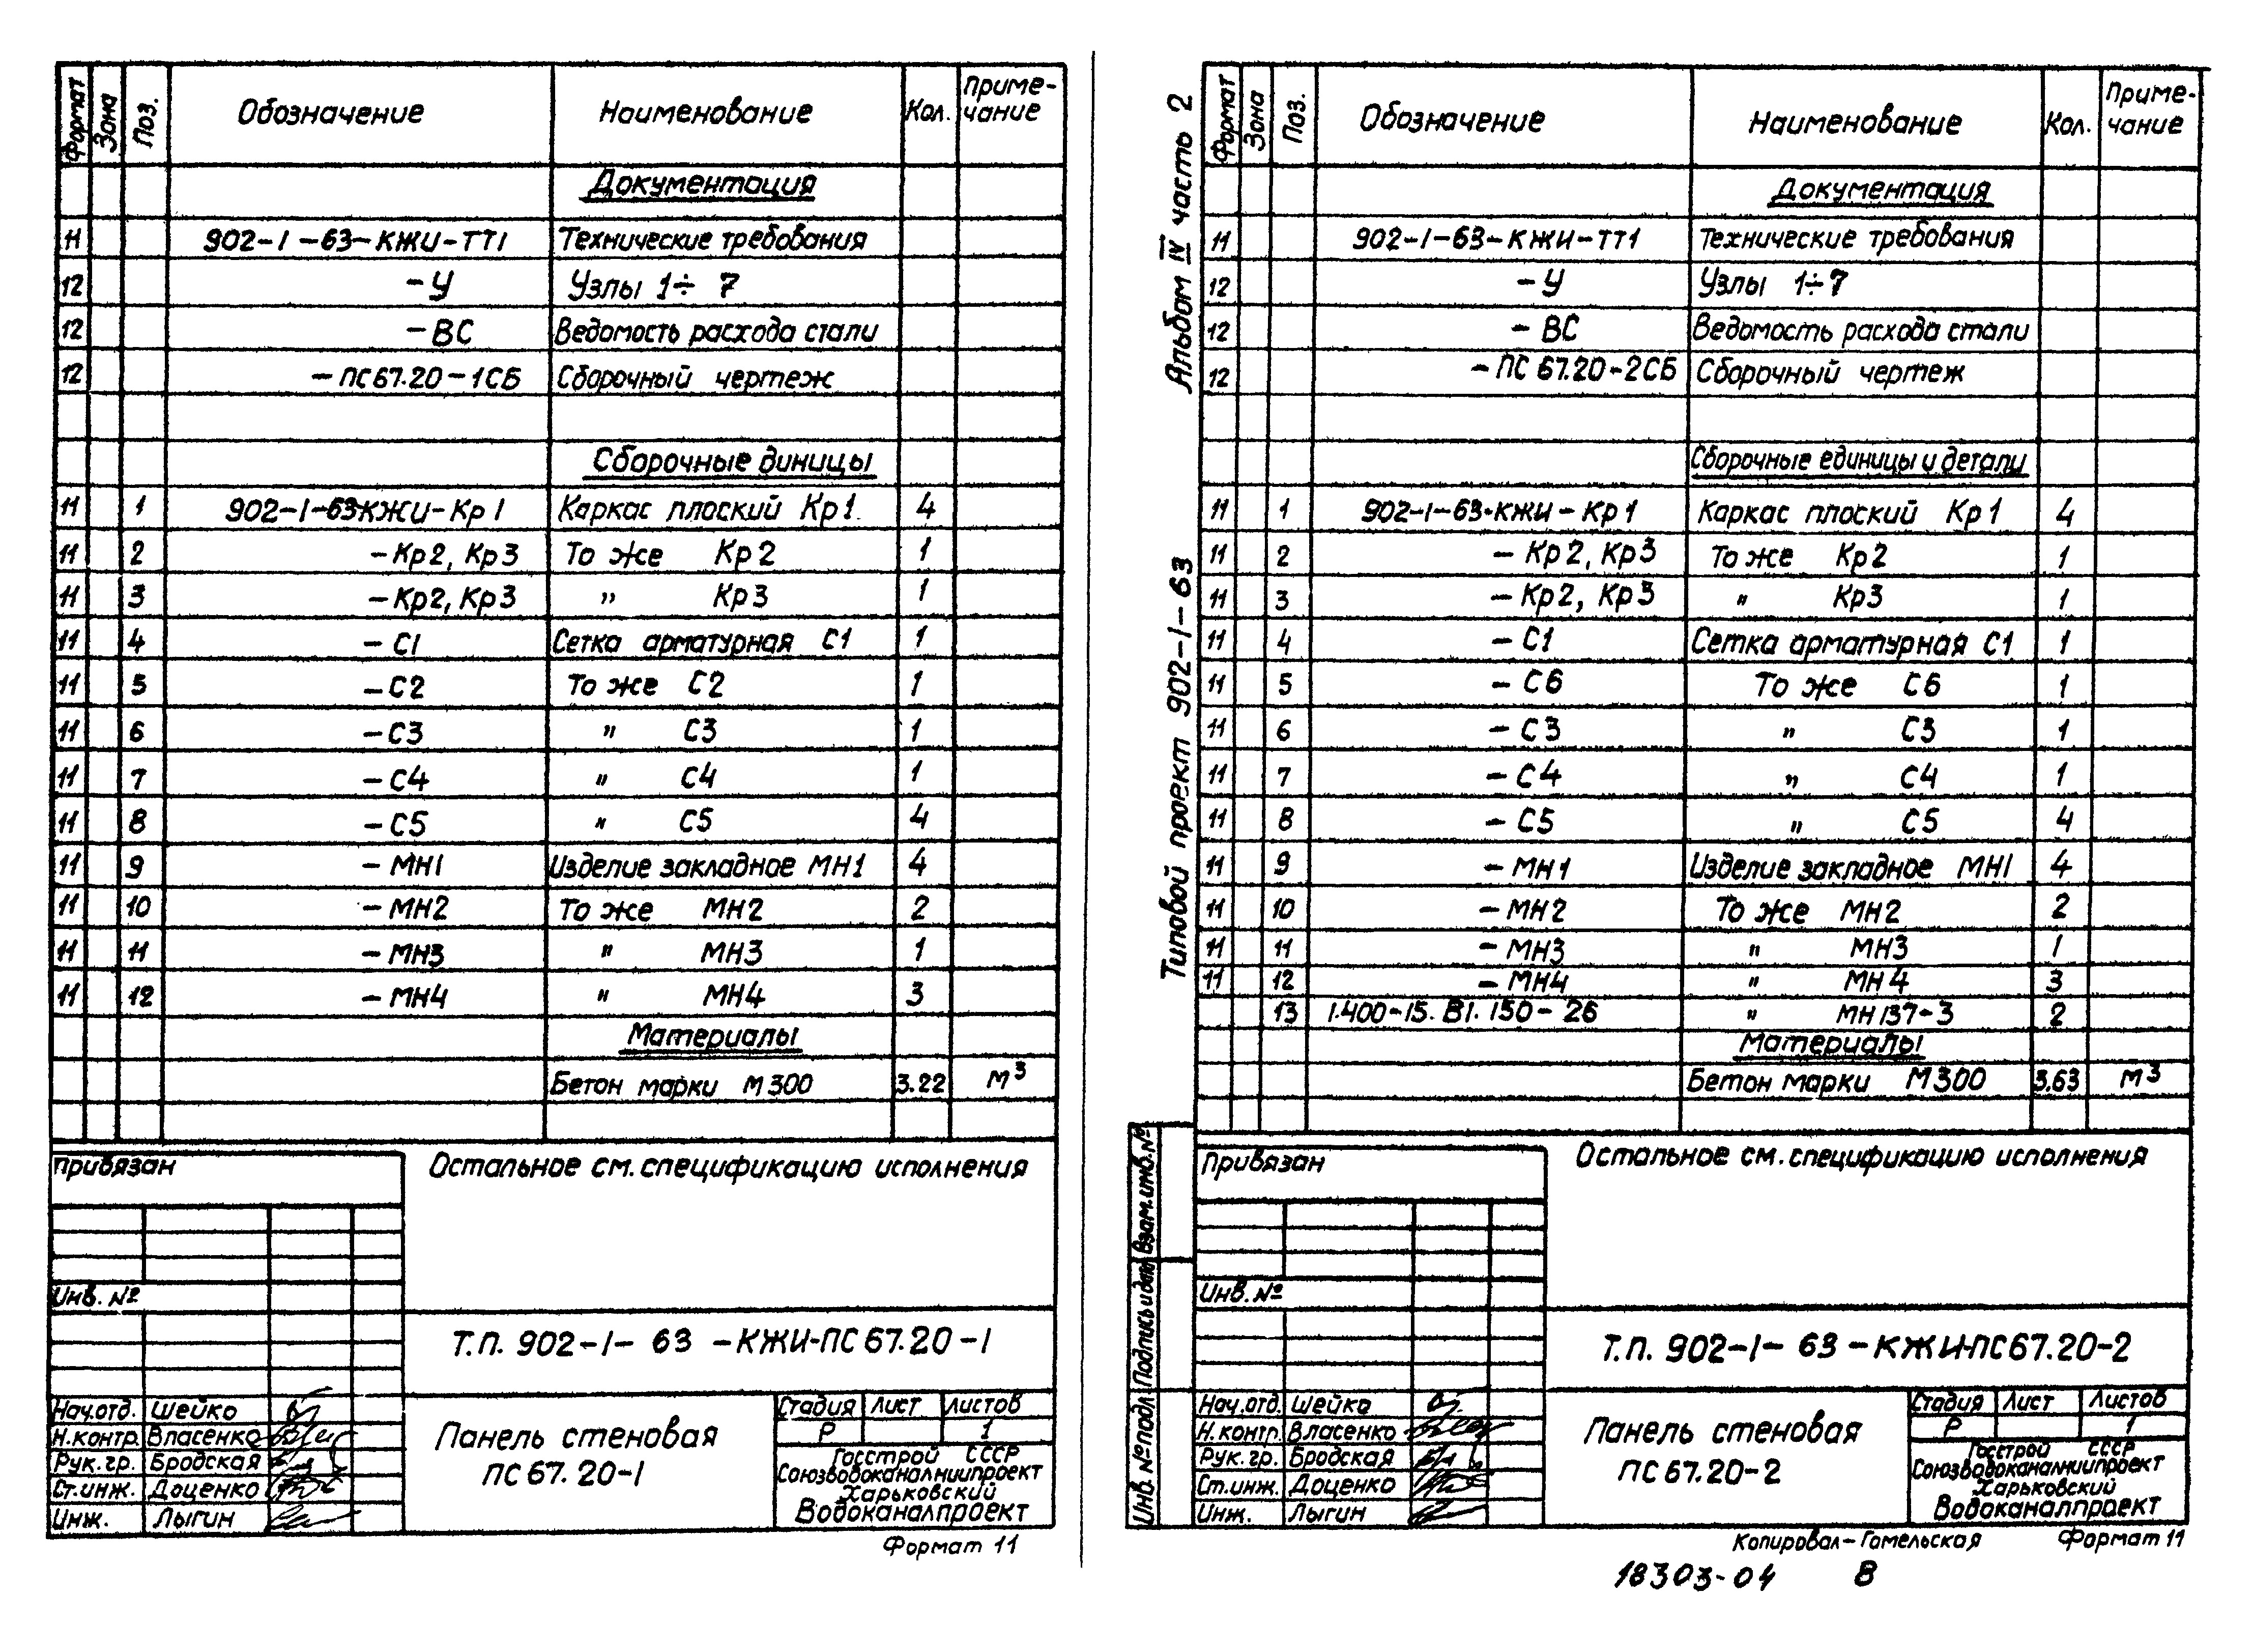 Формат Зона Поз. Обозначение Наименование Кол. Приме-
чание
Документация
11 902-1-63-КЖИ-ТТ1 Технические требования
12 -У Узлы 1÷7
12 -ВС Ведомость расхода стали
12 -ПС67.20-1СБ Сборочный чертеж
Сборочные диницы
11 1 902-1-63-КЖИ-Кр1 Каркас плоский Кр1 4
11 2 -Кр2, Кр3 То же Кр2 1
11 3 -Кр2, Кр3 " Кр3 1
11 4 -С1 Сетка арматурная С1 1
11 5 -С2 То же С2 1
11 6 -С3 " С3 1
11 7 -С4 " С4 1
11 8 -С5 " С5 4
11 9 -МН1 Изделие закладное МН1 4
11 10 -МН2 То же МН2 2
11 11 -МН3 " МН3 1
11 12 -МН4 " МН4 3
Материалы
Бетон марки М300 3.22 м³
Привязан
Остальное см. спецификацию исполнения
Инв. №
Т.П. 902-1-63-КЖИ-ПС67.20-1
Нач.отд. Шейко
Н.контр. Власенко
Рук.гр. Бродская
Ст.инж. Доценко
Инж. Лыгин
Панель стеновая
ПС67.20-1
Стадия Лист Листов
Р 1
Госстрой СССР
Союзводоканалниипроект
Харьковский
Водоканалпроект
Формат 11
Типовой проект 902-1-63 Альбом IV часть 2
Формат Зона Поз. Обозначение Наименование Кол. Приме-
чание
Документация
11 902-1-63-КЖИ-ТТ1 Технические требования
12 -У Узлы 1÷7
12 -ВС Ведомость расхода стали
12 -ПС67.20-2СБ Сборочный чертеж
Сборочные единицы и детали
11 1 902-1-63-КЖИ-Кр1 Каркас плоский Кр1 4
11 2 -Кр2, Кр3 То же Кр2 1
11 3 -Кр2, Кр3 " Кр3 1
11 4 -С1 Сетка арматурная С1 1
11 5 -С6 То же С6 1
11 6 -С3 " С3 1
11 7 -С4 " С4 1
11 8 -С5 " С5 4
11 9 -МН1 Изделие закладное МН1 4
11 10 -МН2 То же МН2 2
11 11 -МН3 " МН3 1
11 12 -МН4 " МН4 3
13 1.400-15.В1.150-26 " МН137-3 2
Материалы
Бетон марки М300 3,63 м³
Инв. № подл. Подпись и дата Взам.инв.№
Привязан
Остальное см. спецификацию исполнения
Инв. №
Т.П. 902-1-63-КЖИ-ПС67.20-2
Нач.отд. Шейко
Н.контр. Власенко
Рук.гр. Бродская
Ст.инж. Доценко
Инж. Лыгин
Панель стеновая
ПС67.20-2
Стадия Лист Листов
Р 1
Госстрой СССР
Союзводоканалниипроект
Харьковский
Водоканалпроект
Копировал-Гомельская Формат 11
18303-04 8